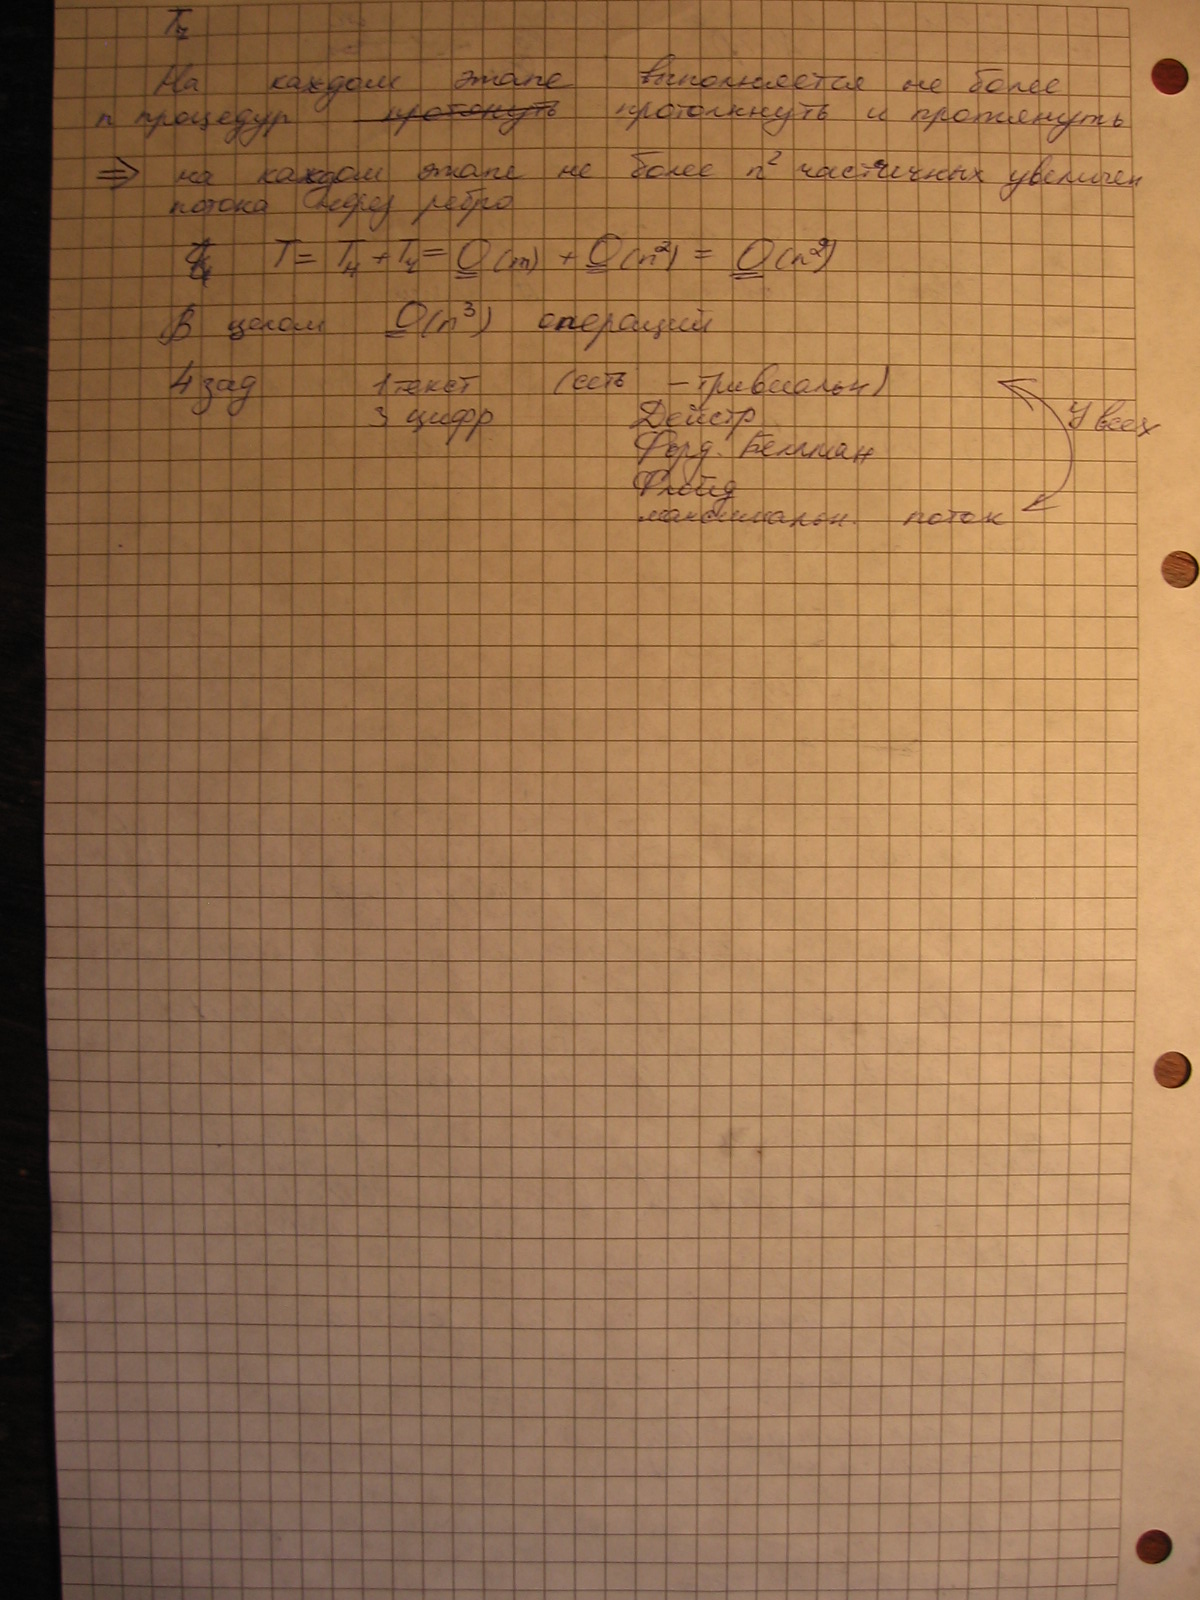 Tч
На каждом этапе выполняется не более
n процедур протонуть протолкнуть и протянуть
⇒ на каждом этапе не более n² частичных увеличен
потока через ребро
T = Tн + Tч = O(m) + O(n²) = O(n²)
В целом O(n³) операций
4 зад 1 текст (есть – тривиальн)
3 цифр Дейстр
У всех
Форд. Беллман
Флойд
максимальн. поток